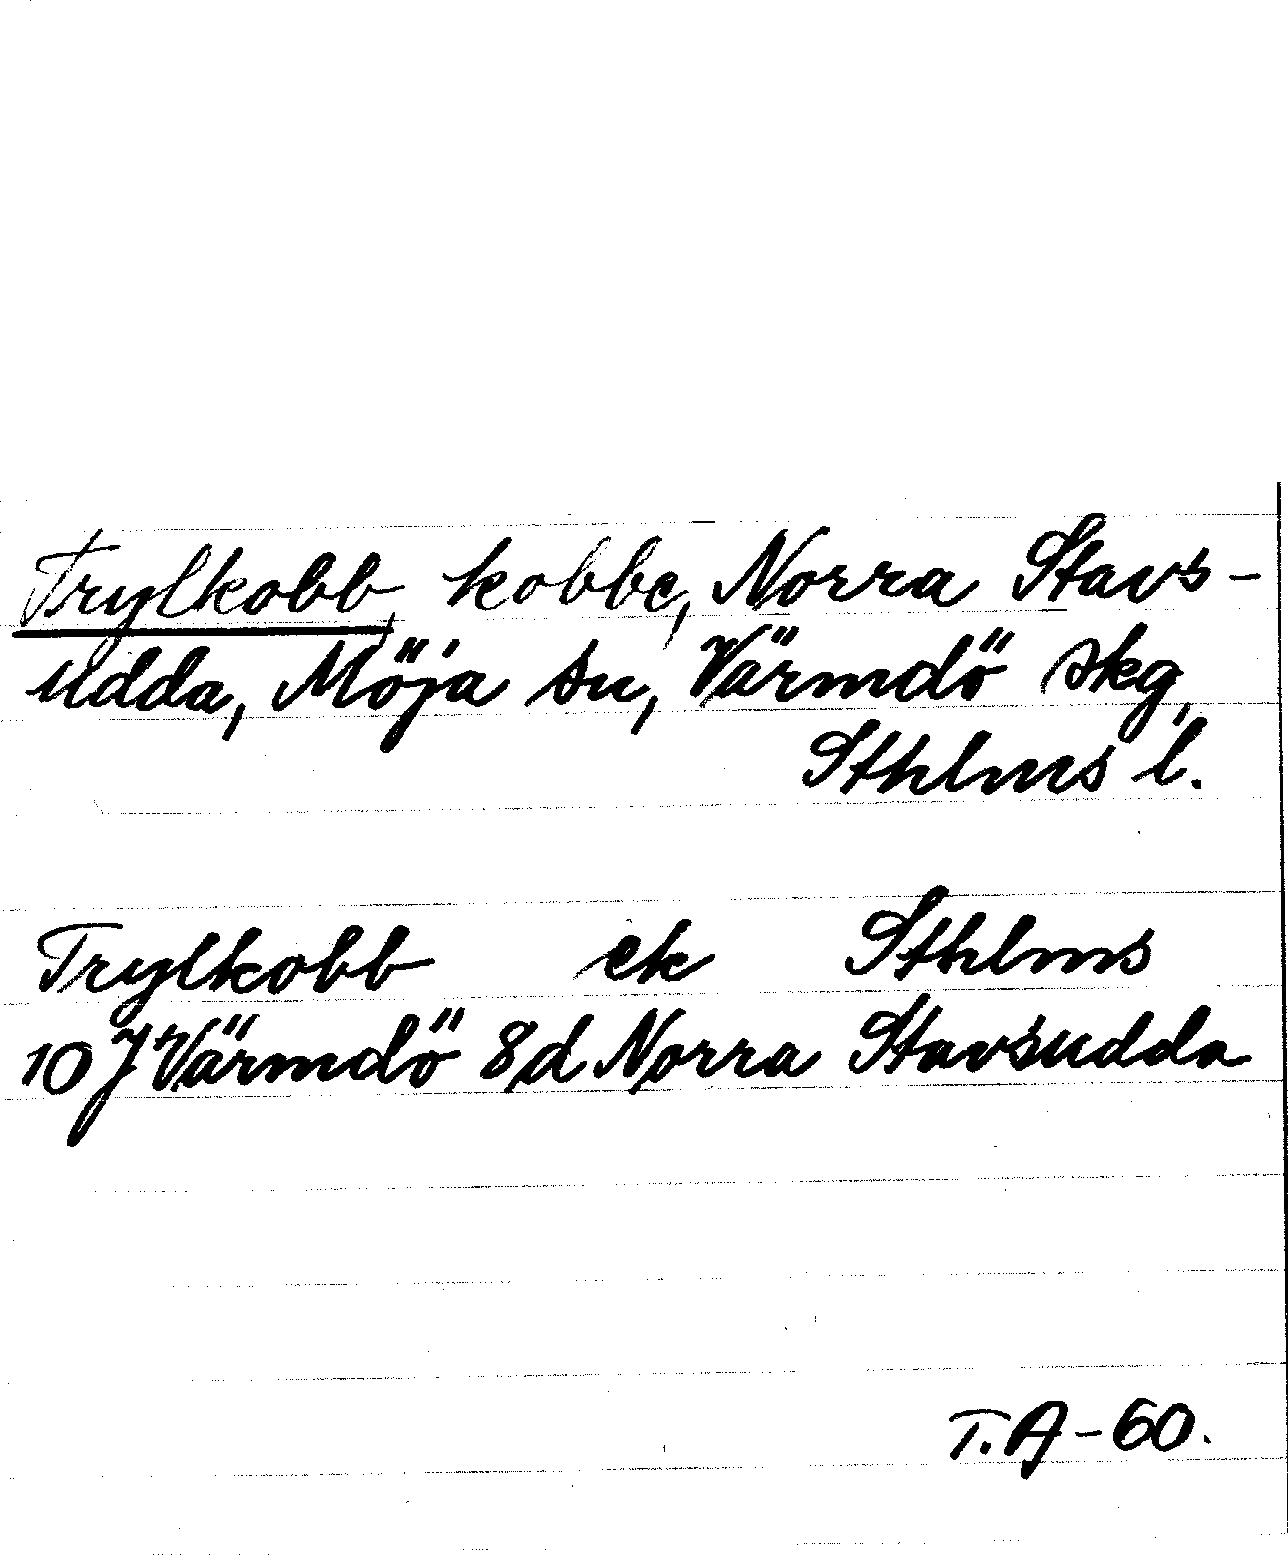 Trylkobb, kobbe, Norra Stavs-
udda, Möja sn, Värmdö skg,
Sthlms l.
Trylkobb ek Sthlms
10 J Värmdö 8d Norra Stavsudda
T.A-60.